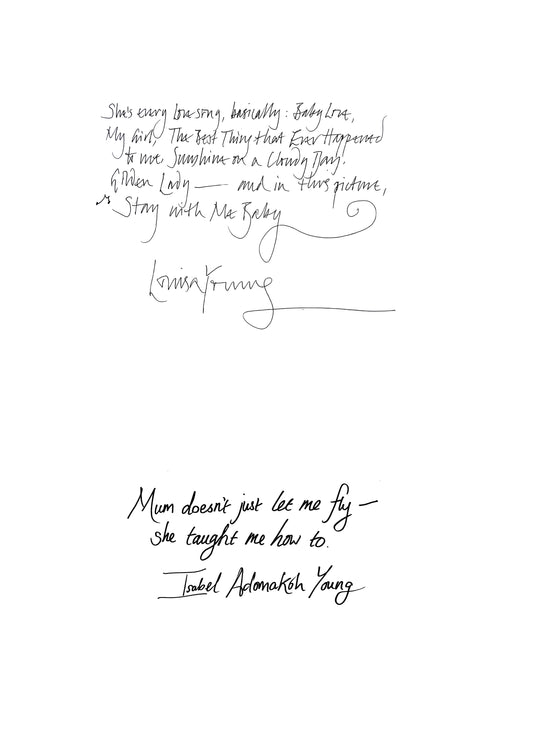 She's every love song, basically: Baby Love,
My Girl, The Best Thing that Ever Happened
to me. Sunshine on a Cloudy Day.
Golden Lady — and in this picture,
Stay with Me Baby
Louisa Young
Mum doesn't just let me fly —
she taught me how to.
Isabel Adomakoh Young